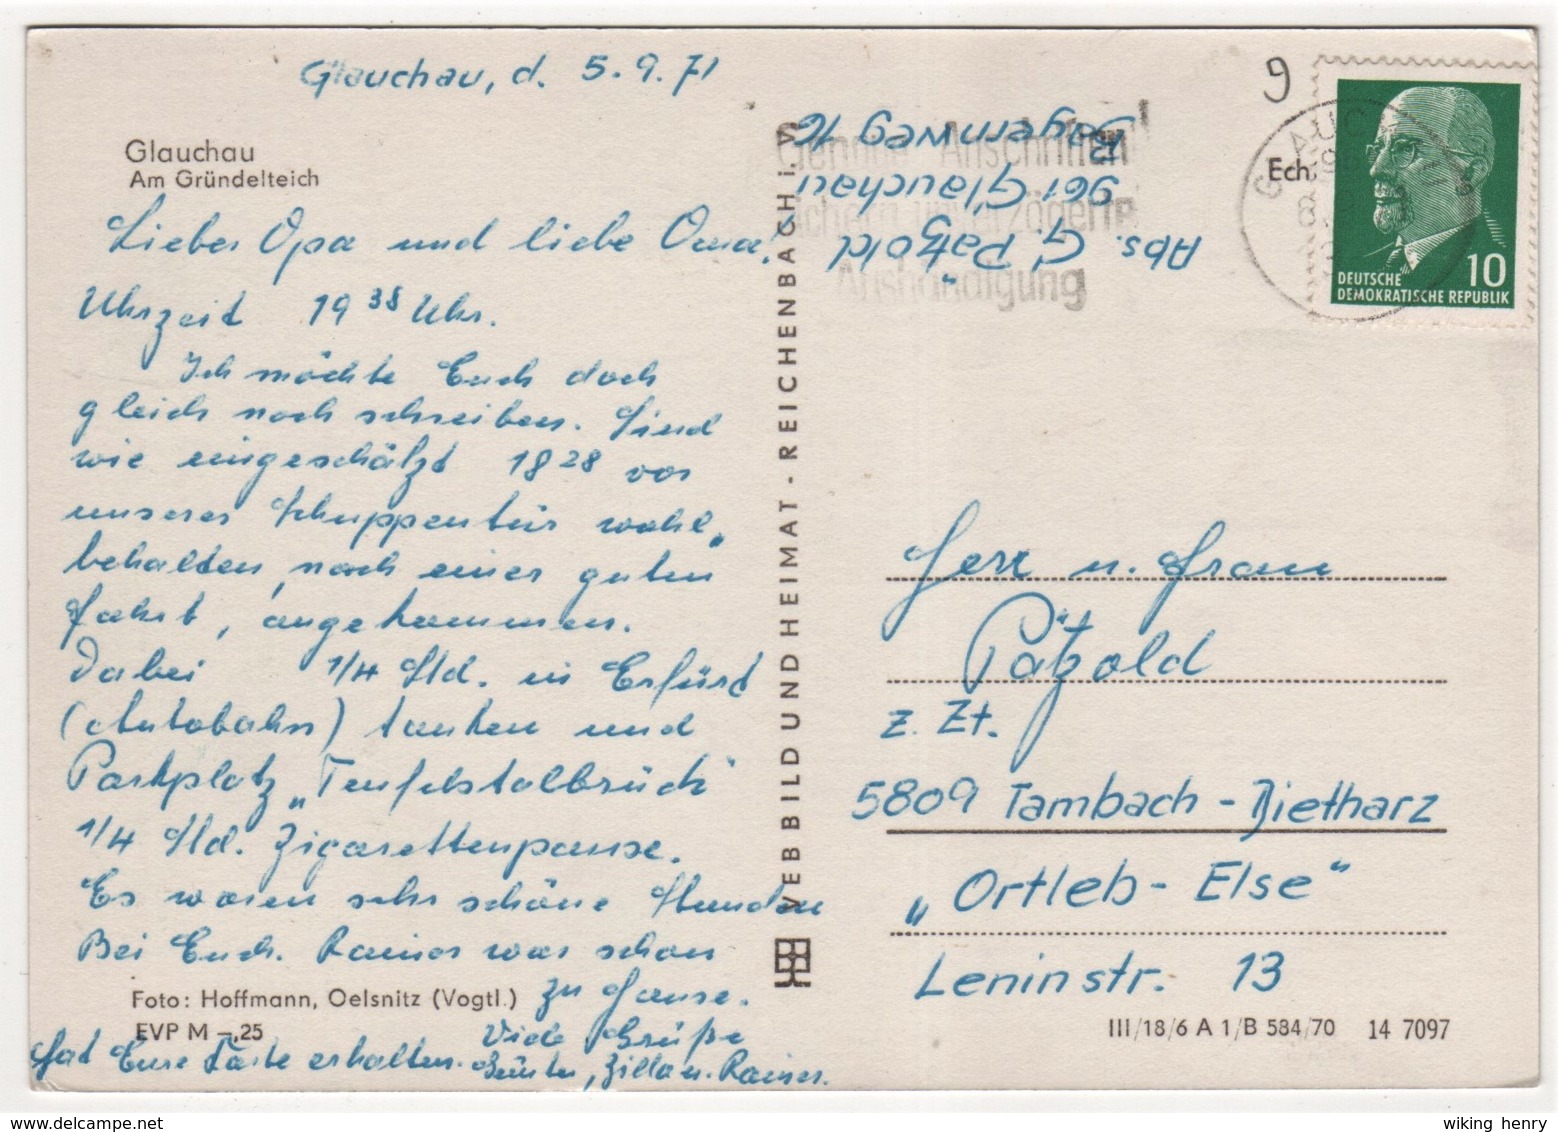 Glauchau, d. 5.9.71
Glauchau
Am Gründelteich
Lieber Opa und liebe Oma!
Uhrzeit 19 38 Uhr.
Ich möchte Euch doch
gleich noch schreiben. Sind
wie eingeschätzt 18 28 vor
unserer Schuppentür wohl„
behalten, nach einer guten
Fahrt, angekommen.
Dabei 1/4 Std. in Erfurt
(Autobahn) tanken und
Parkplatz „Teufelstalbrück"
1/4 Std. Zigarettenpause.
Es waren sehr schöne Stunden
Bei Euch. Rainer war schon
zu Hause.
Foto: Hoffmann, Oelsnitz (Vogtl.)
EVP M -,25
Viele Grüße
Hat Eure Karte erhalten. Günter, Zilla u. Rainer.
VEB BILD UND HEIMAT · REICHENBACH i. V.
Abs. G. Pätzold
961 Glauchau
Bayernweg 16
Genaue Anschriften
sichern unverzögerte
Aushändigung
9
Ech
GLAUCHAU
DEUTSCHE
DEMOKRATISCHE REPUBLIK
10
Herr u. Frau
Pätzold
z. Zt.
5809 Tambach - Dietharz
„Ortleb - Else"
Leninstr. 13
III/18/6 A 1/B 584/70 14 7097
wiking henry